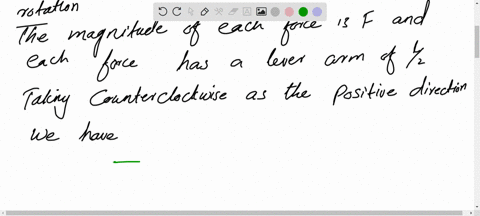 rotation
The magnitude of each force is F and
each force has a lever arm of L/2
Taking Counterclockwise as the positive direction
we have